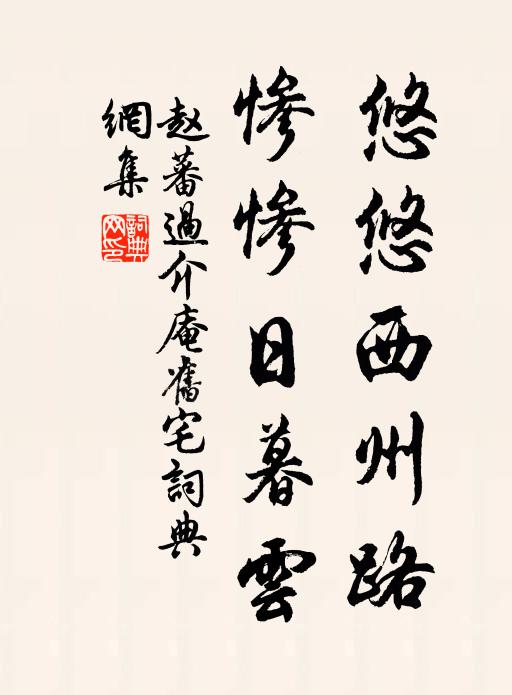 悠悠西州路
惨惨日暮雲
赵蕃過介庵舊宅詞典
網集
詞典
网印